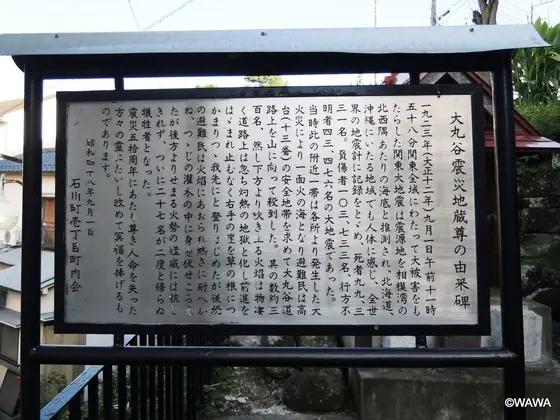 大丸谷震災地蔵尊の由来碑
一九二三年(大正十二年)九月一日午前十一時
五十八分関東全域にわたって大被害をも
たらした関東大地震は震源地を相模湾の
北西隅あたりの海底と推測され、北海道、
沖縄にいたる地域でも人体に感じ、全世
界の地震計に記録をとゞめ、死者九九、三
三一名。負傷者一〇三、七三三名、行方不
明者四三、四七六名の大地震であった。
当時此の附近一帯は各所より発生した大
火災により一面火の海となり避難民は高
台(十三番)の安全地帯を求めて大丸谷道
路上を山に向って殺到した。其の数約三
百名、然し下方より吹き上る火焔は物凄
く道路上は忽ち灼熱の地獄と化し前進を
はゞまれ止むなく右手の崖を草の根につ
かまりつゝ我先にと登りはじめたが後続
の避難民は火焔にあおられ熱さに耐へか
ね、つゝじの灌木の中に身を伏せところ
たが後方よりせまる火勢の猛威には抗し
きれず、ついに二十七名が二度と帰らぬ
犠牲者となった。
震災五拾周年にあたり尊き人命を失った
方々の霊にたいし改めて冥福を捧げるも
のであります。
昭和四十八年九月一日
石川町壱丁目町内会
©WAWA